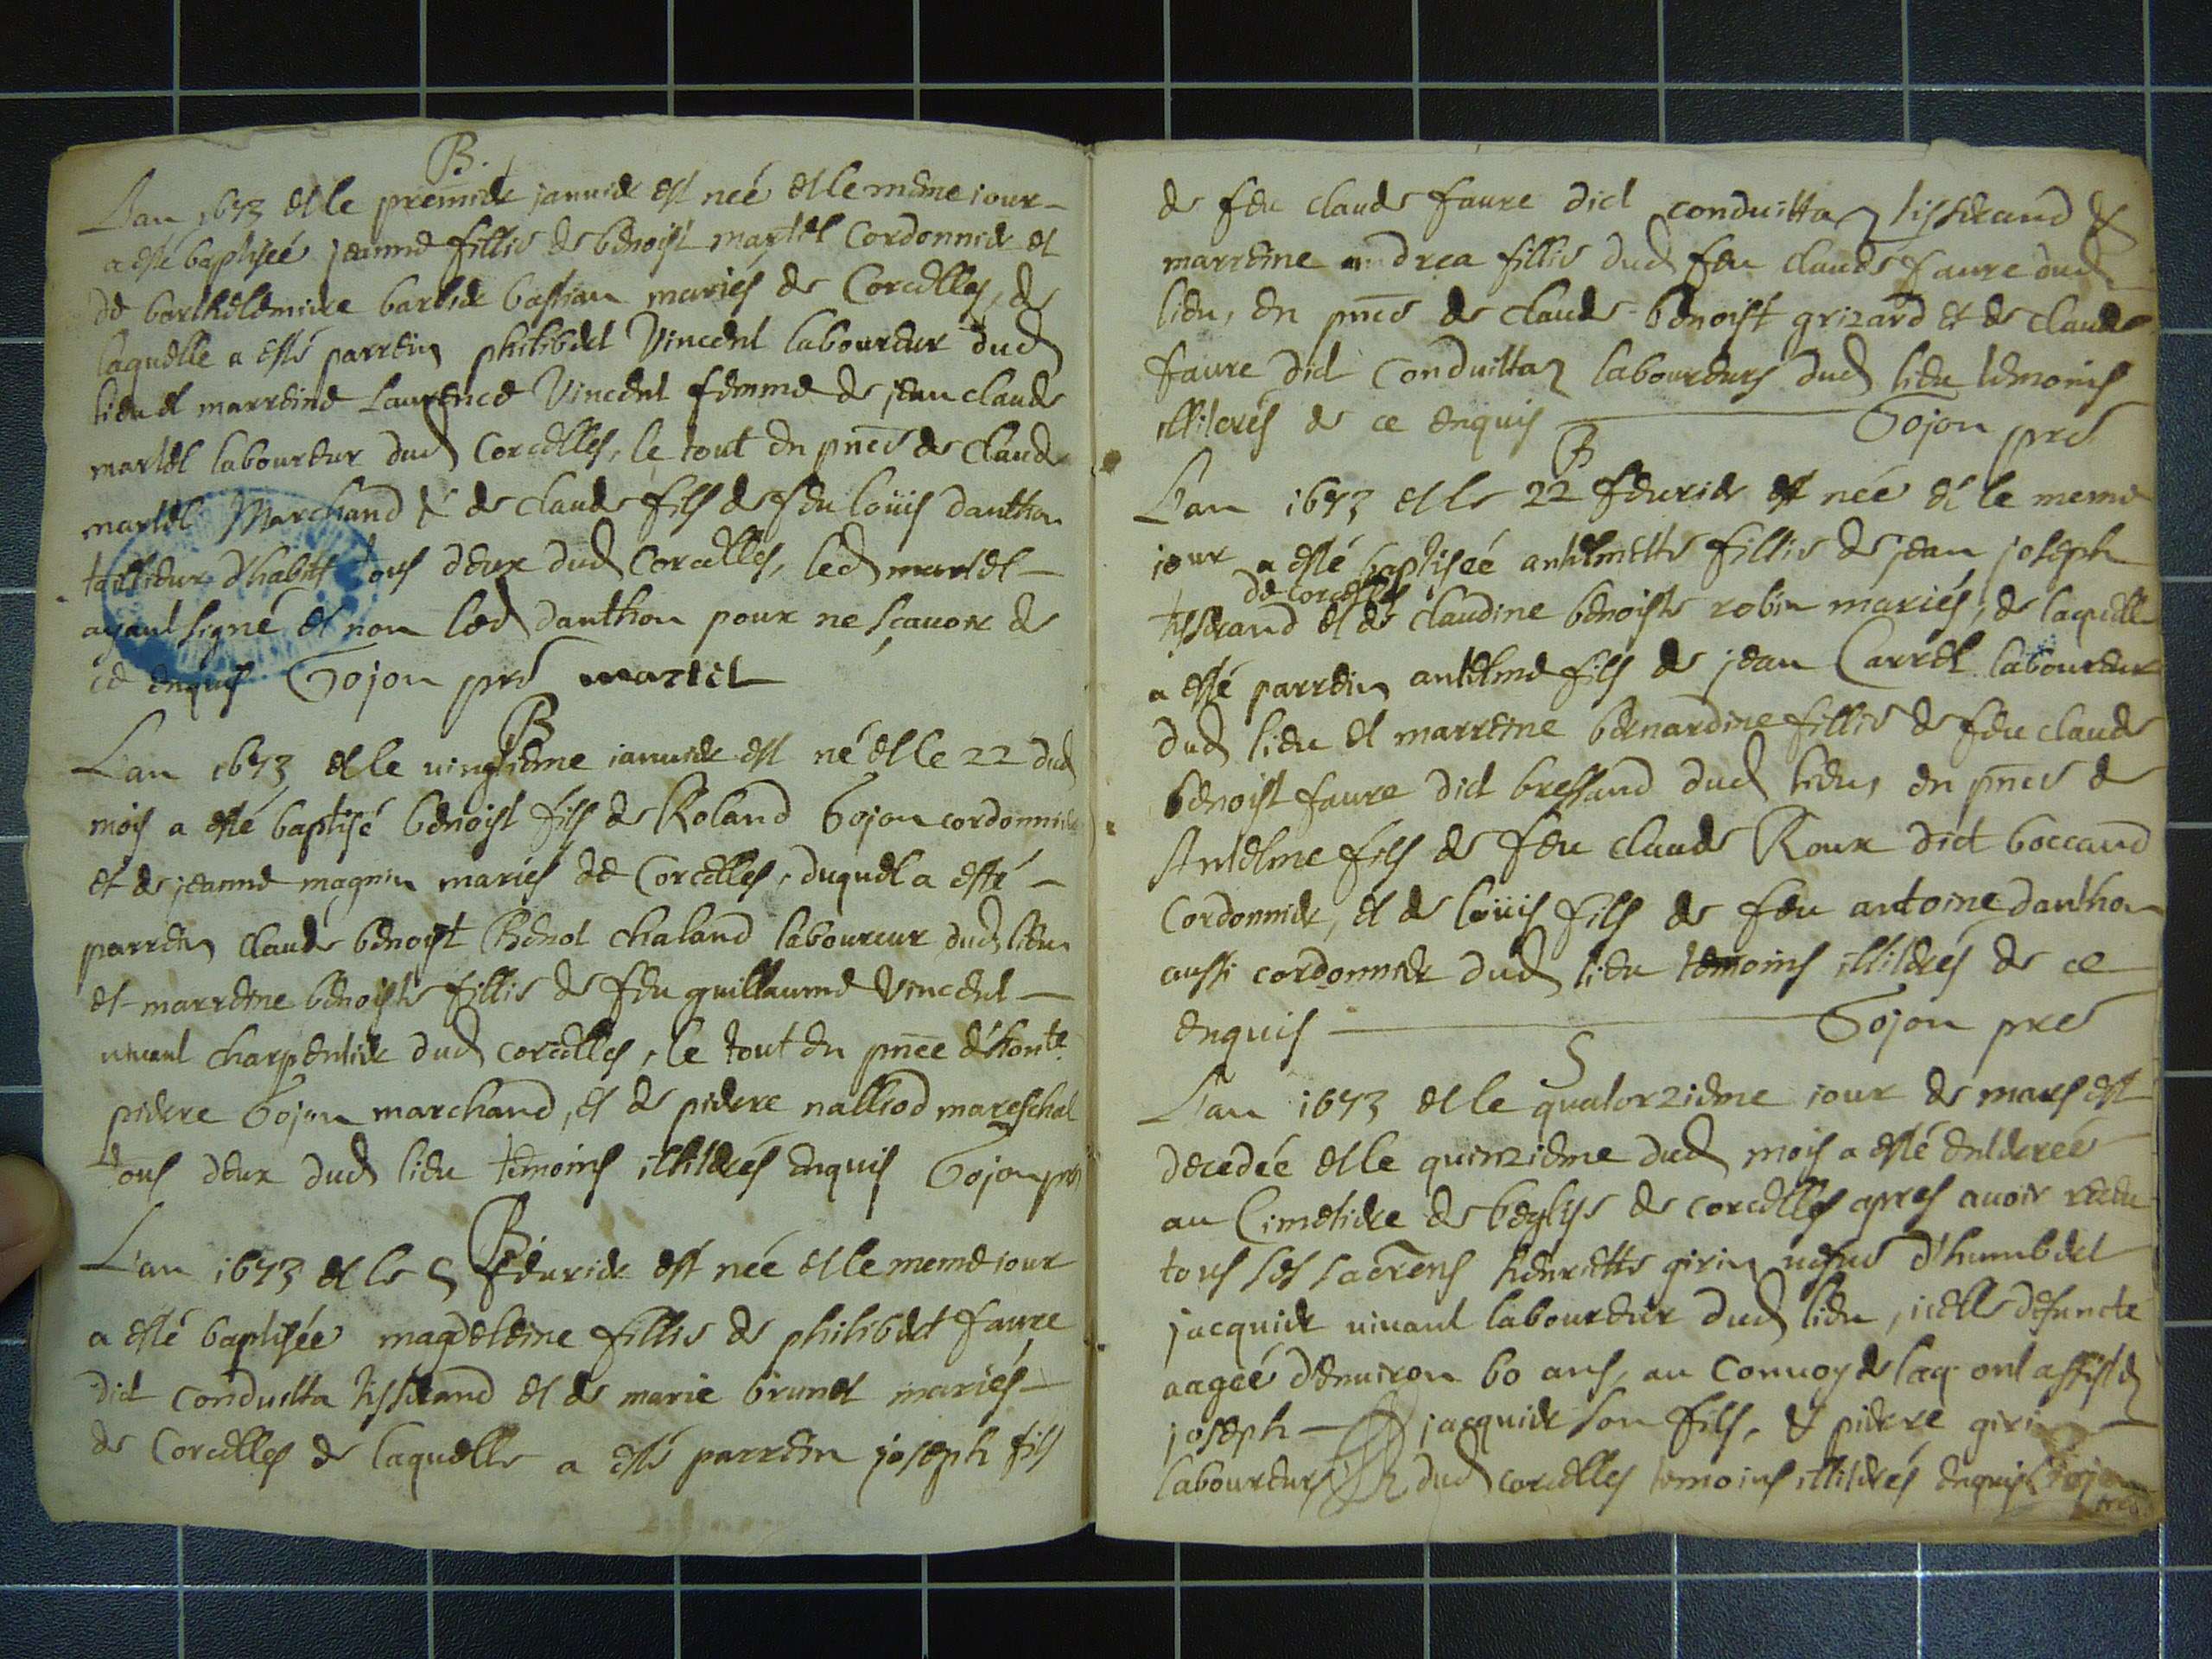 B.
L'an 1673 et le premier januier est neé et le méme iour
a esté baptiseé jeanne fillie de benoist martel Cordonnier et
de barthelemiere barbier bastian mariés de Corcelles, de
laquelle a esté parrein philibert Vincent laboureur dud
lieu et marreine Laurence Vincent femme de jean claude
martel laboureur dud Corcelles, le tout en pnce de Claude
martel Marchand & de claude fils de feu loüis danthon
tailleur d'habits tous deux dud Corcelles, led martel
ayant signé et non led danthon pour ne sçauoir de
ce enquis Gojon pre martel
B
L'an 1673 et le uingtieme januier est né et le 22 dud
mois a esté baptisé benoist fils de Roland Gojon cordonnier
et de jeanne magnin mariés de Corcelles, duquel a esté
parrein claude benoist Benot chaland laboureur dud lieu
et marreine benoiste fillie de feu guillaume Vincent
uiuant charpentier dud corcelles, le tout en pnce d'honte
pierre Gojon marchand, et de pierre nalliod mareschal
tous deux dud lieu témoins illiterés enquis Gojon pre
B.
L'an 1673 et le 5 féurier est neé et le meme iour
a esté baptisée magdeleine fillie de philibert faure
dict conduitta tisserand et de marie brunet mariés
de Corcelles de laquelle a esté parrein joseph fils
de feu claude faure dict conduitta tisserand &
marreine andrea fillie dud feu claude faure dud
lieu, en pnce de claude benoist grizard et de claude
faure dict Conduitta laboureurs dud lieu temoins
illiterés de ce enquis Gojon pre
B
L'an 1673 et le 22 féurier est neé et le meme
iour a esté baptiseé antelmette fillie de jean joseph
de corcelles
tisserand et de claudine benoiste robin mariés, de laquelle
a esté parrein antelme fils de jean Carrel laboureur
dud lieu et marreine bernardine fillie de feu claude
benoist faure dict bressand dud lieu, en pnce de
Antelme fils de feu claude Roux dict boccand
Cordonnier, et de loüis fils de feu antoine danthon
aussi cordonnier dud lieu temoins illiterés de ce
enquis Gojon pre
S
L'an 1673 et le quatorzieme iour de mars est
decedée et le quinzieme dud mois a esté enterreé
au Cimetiere de l'eglise de corcelles apres auoir receu
tous ses sacrens henriette girin uefue d'humbert
jacquier uiuant laboureur dud lieu, icelle defuncte
aageé d'enuiron 60 ans, au Conuoy de laq ont assisté
joseph jacquier son fils, & pierre girin
laboureurs dud corcelles temoins illiterés enquis Gojon
pre